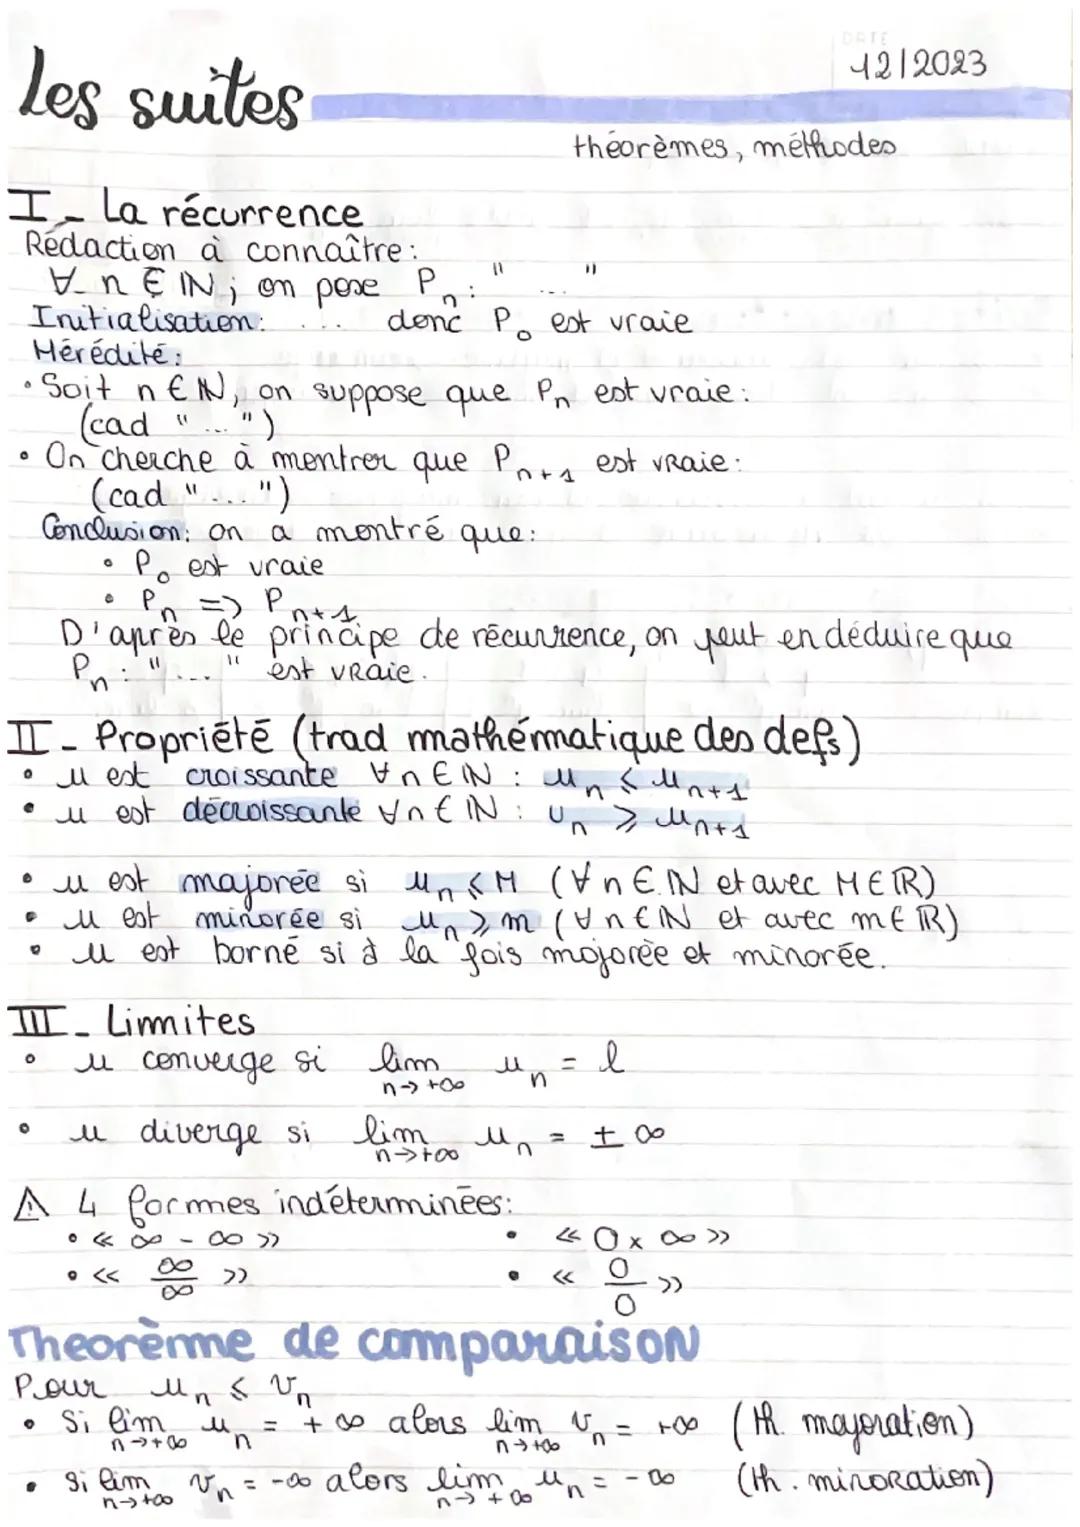 DATE
12/2023
Les suites
théorèmes, méthodes
I - La récurrence
Rédaction à connaître :
∀ n ∈ ℕ ; on pose Pₙ : " ... "
Initialisation : ... donc P₀ est vraie
Hérédité :
• Soit n ∈ ℕ, on suppose que Pₙ est vraie :
(cad " ... ")
• On cherche à montrer que Pₙ₊₁ est vraie :
(cad " ... ")
Conclusion : on a montré que :
• P₀ est vraie
• Pₙ => Pₙ₊₁
D'après le principe de récurrence, on peut en déduire que
Pₙ : " ... " est vraie.
II - Propriété (trad mathématique des defs)
• u est croissante ∀ n ∈ ℕ : uₙ ⩽ uₙ₊₁
• u est décroissante ∀ n ∈ ℕ : uₙ ⩾ uₙ₊₁
• u est majorée si uₙ ⩽ M (∀ n ∈ ℕ et avec M ∈ ℝ)
• u est minorée si uₙ ⩾ m (∀ n ∈ ℕ et avec m ∈ ℝ)
• u est borné si à la fois majorée et minorée.
III - Limites
• u converge si lim n→+∞ uₙ = l
• u diverge si lim n→+∞ uₙ = ± ∞
⚠ 4 formes indéterminées :
• « ∞ - ∞ » • « 0 × ∞ »
• « ∞/∞ » • « 0/0 »
Theorème de comparaison
Pour uₙ ⩽ vₙ
• Si lim n→+∞ uₙ = + ∞ alors lim n→+∞ vₙ = +∞ (th. majoration)
• Si lim n→+∞ vₙ = -∞ alors lim n→+∞ uₙ = - ∞ (th. minoration)